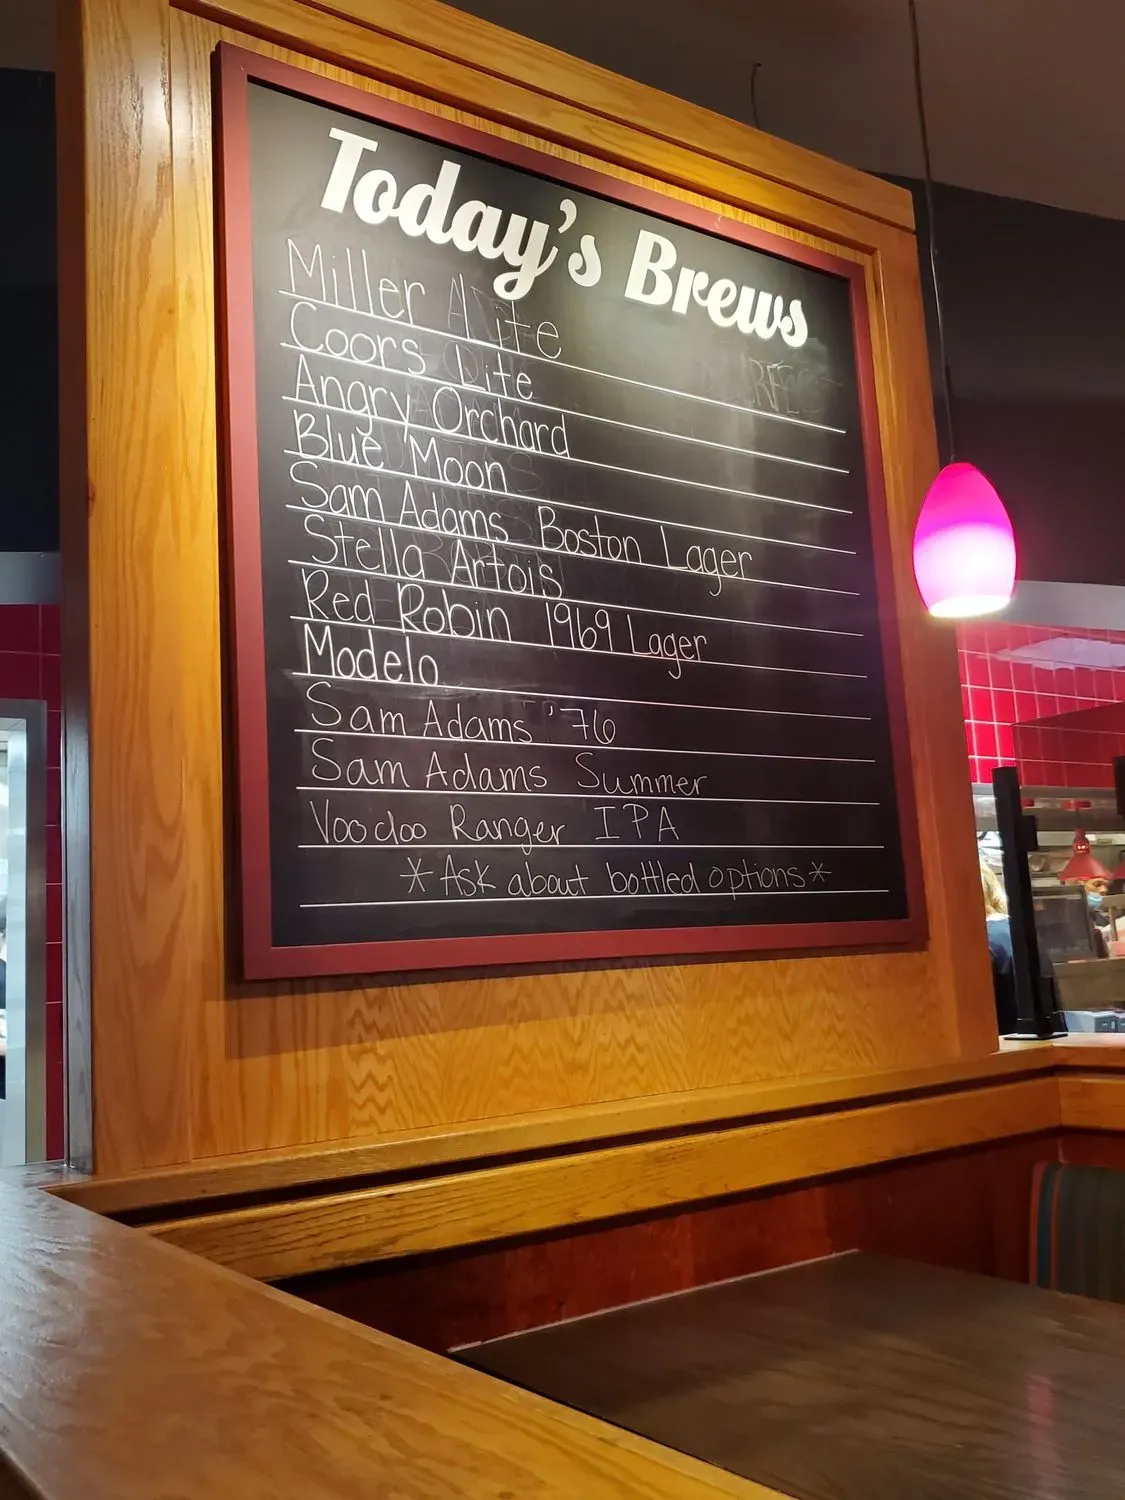 Today's Brews
Miller Lite
Coors Lite
Angry Orchard
Blue Moon
Sam Adams Boston Lager
Stella Artois
Red Robin 1969 Lager
Modelo
Sam Adams '76
Sam Adams Summer
Voodoo Ranger IPA
*Ask about bottled options*